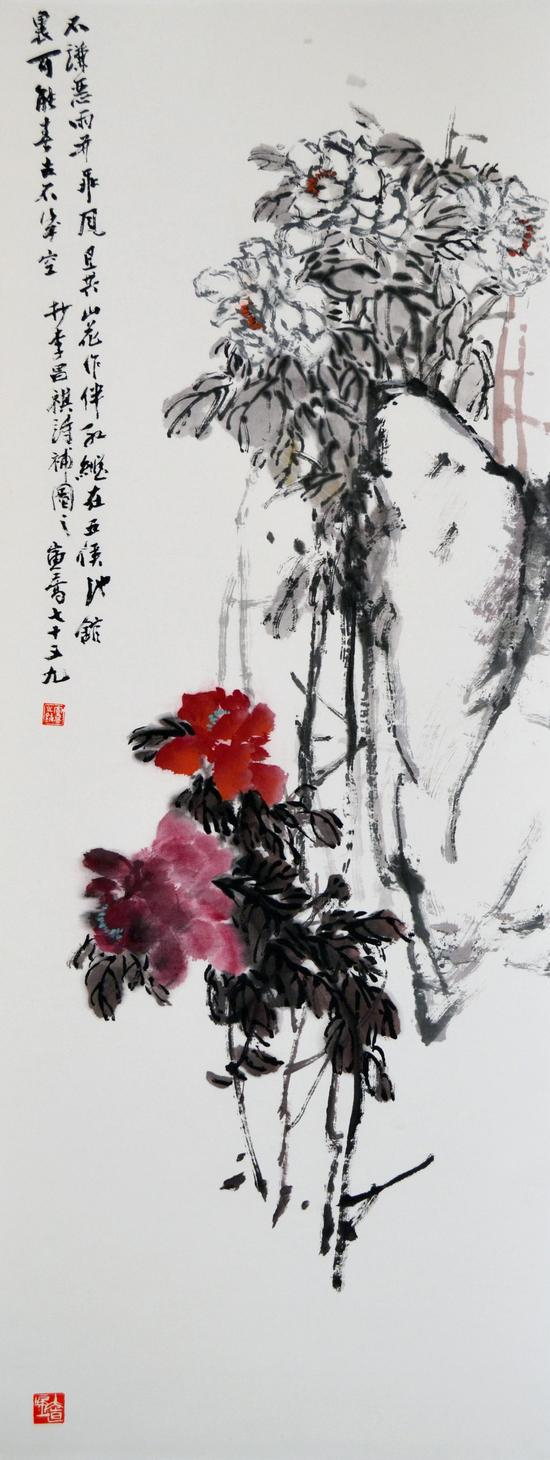 不謙惡雨并乖風且共山花作伴紅縱在五侯池館
裏可能春去不空 抄李昌祺詩補圖之 七十五九